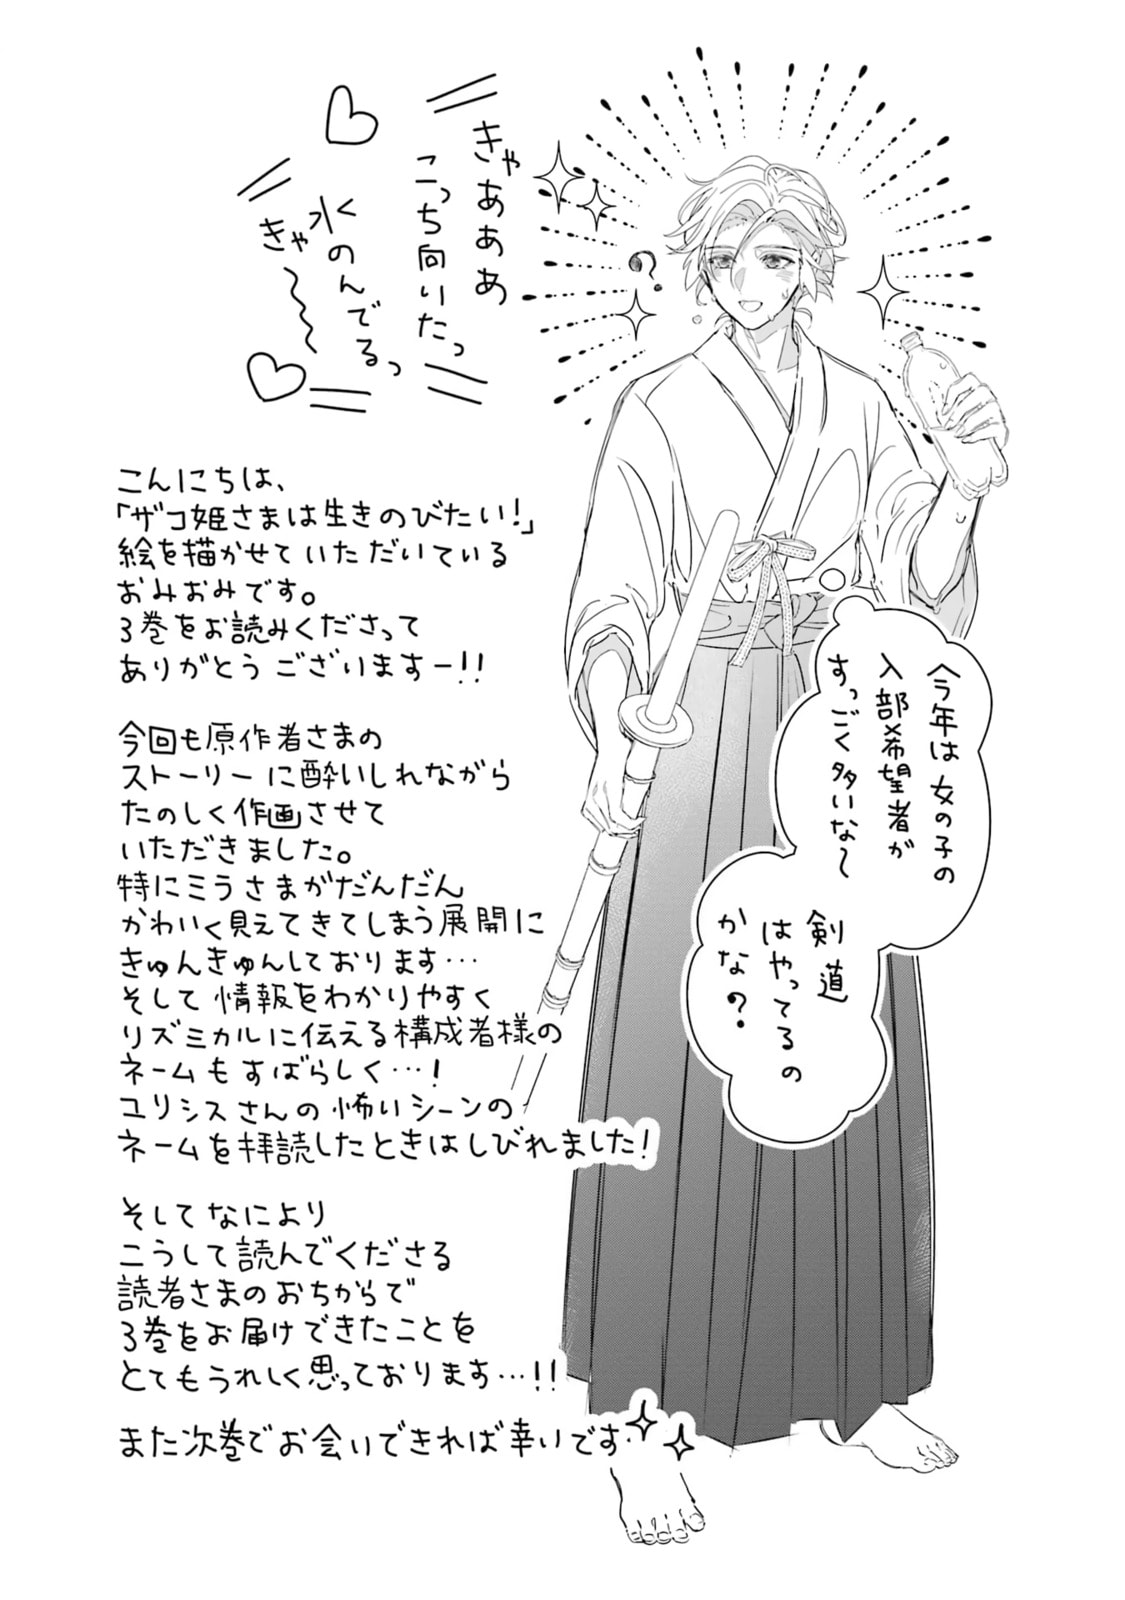 きゃあああ
こっち向いたっ
水のんでるっ
きゃ〜〜〜
こんにちは、
「ザコ姫さまは生きのびたい!」
絵を描かせていただいている
おみおみです。
3巻をお読みくださって
ありがとうございますー!!
今回も原作者さまの
ストーリーに酔いしれながら
たのしく作画させて
いただきました。
特にミラさまがだんだん
かわいく見えてきてしまう展開に
きゅんきゅんしております…
そして情報をわかりやすく
リズミカルに伝える構成者様の
ネームもすばらしく…!
ユリシスさんの怖いシーンの
ネームを拝読したときはしびれました!
そしてなにより
こうして読んでくださる
読者さまのおちからで
3巻をお届けできたことを
とてもうれしく思っております…!!
また次巻でお会いできれば幸いです
?
今年は女の子の
入部希望者が
すっごく多いな〜
剣道
はやってるの
かな?